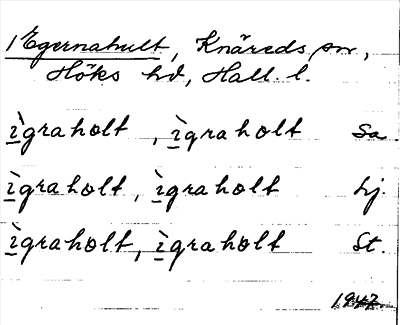 1 Egernahult, Knäreds sn,
Höks hd, Hall. l.
ìgraholt, ìgraholt Sa.
ìgraholt, ìgraholt Lj.
ìgraholt, ìgraholt St.